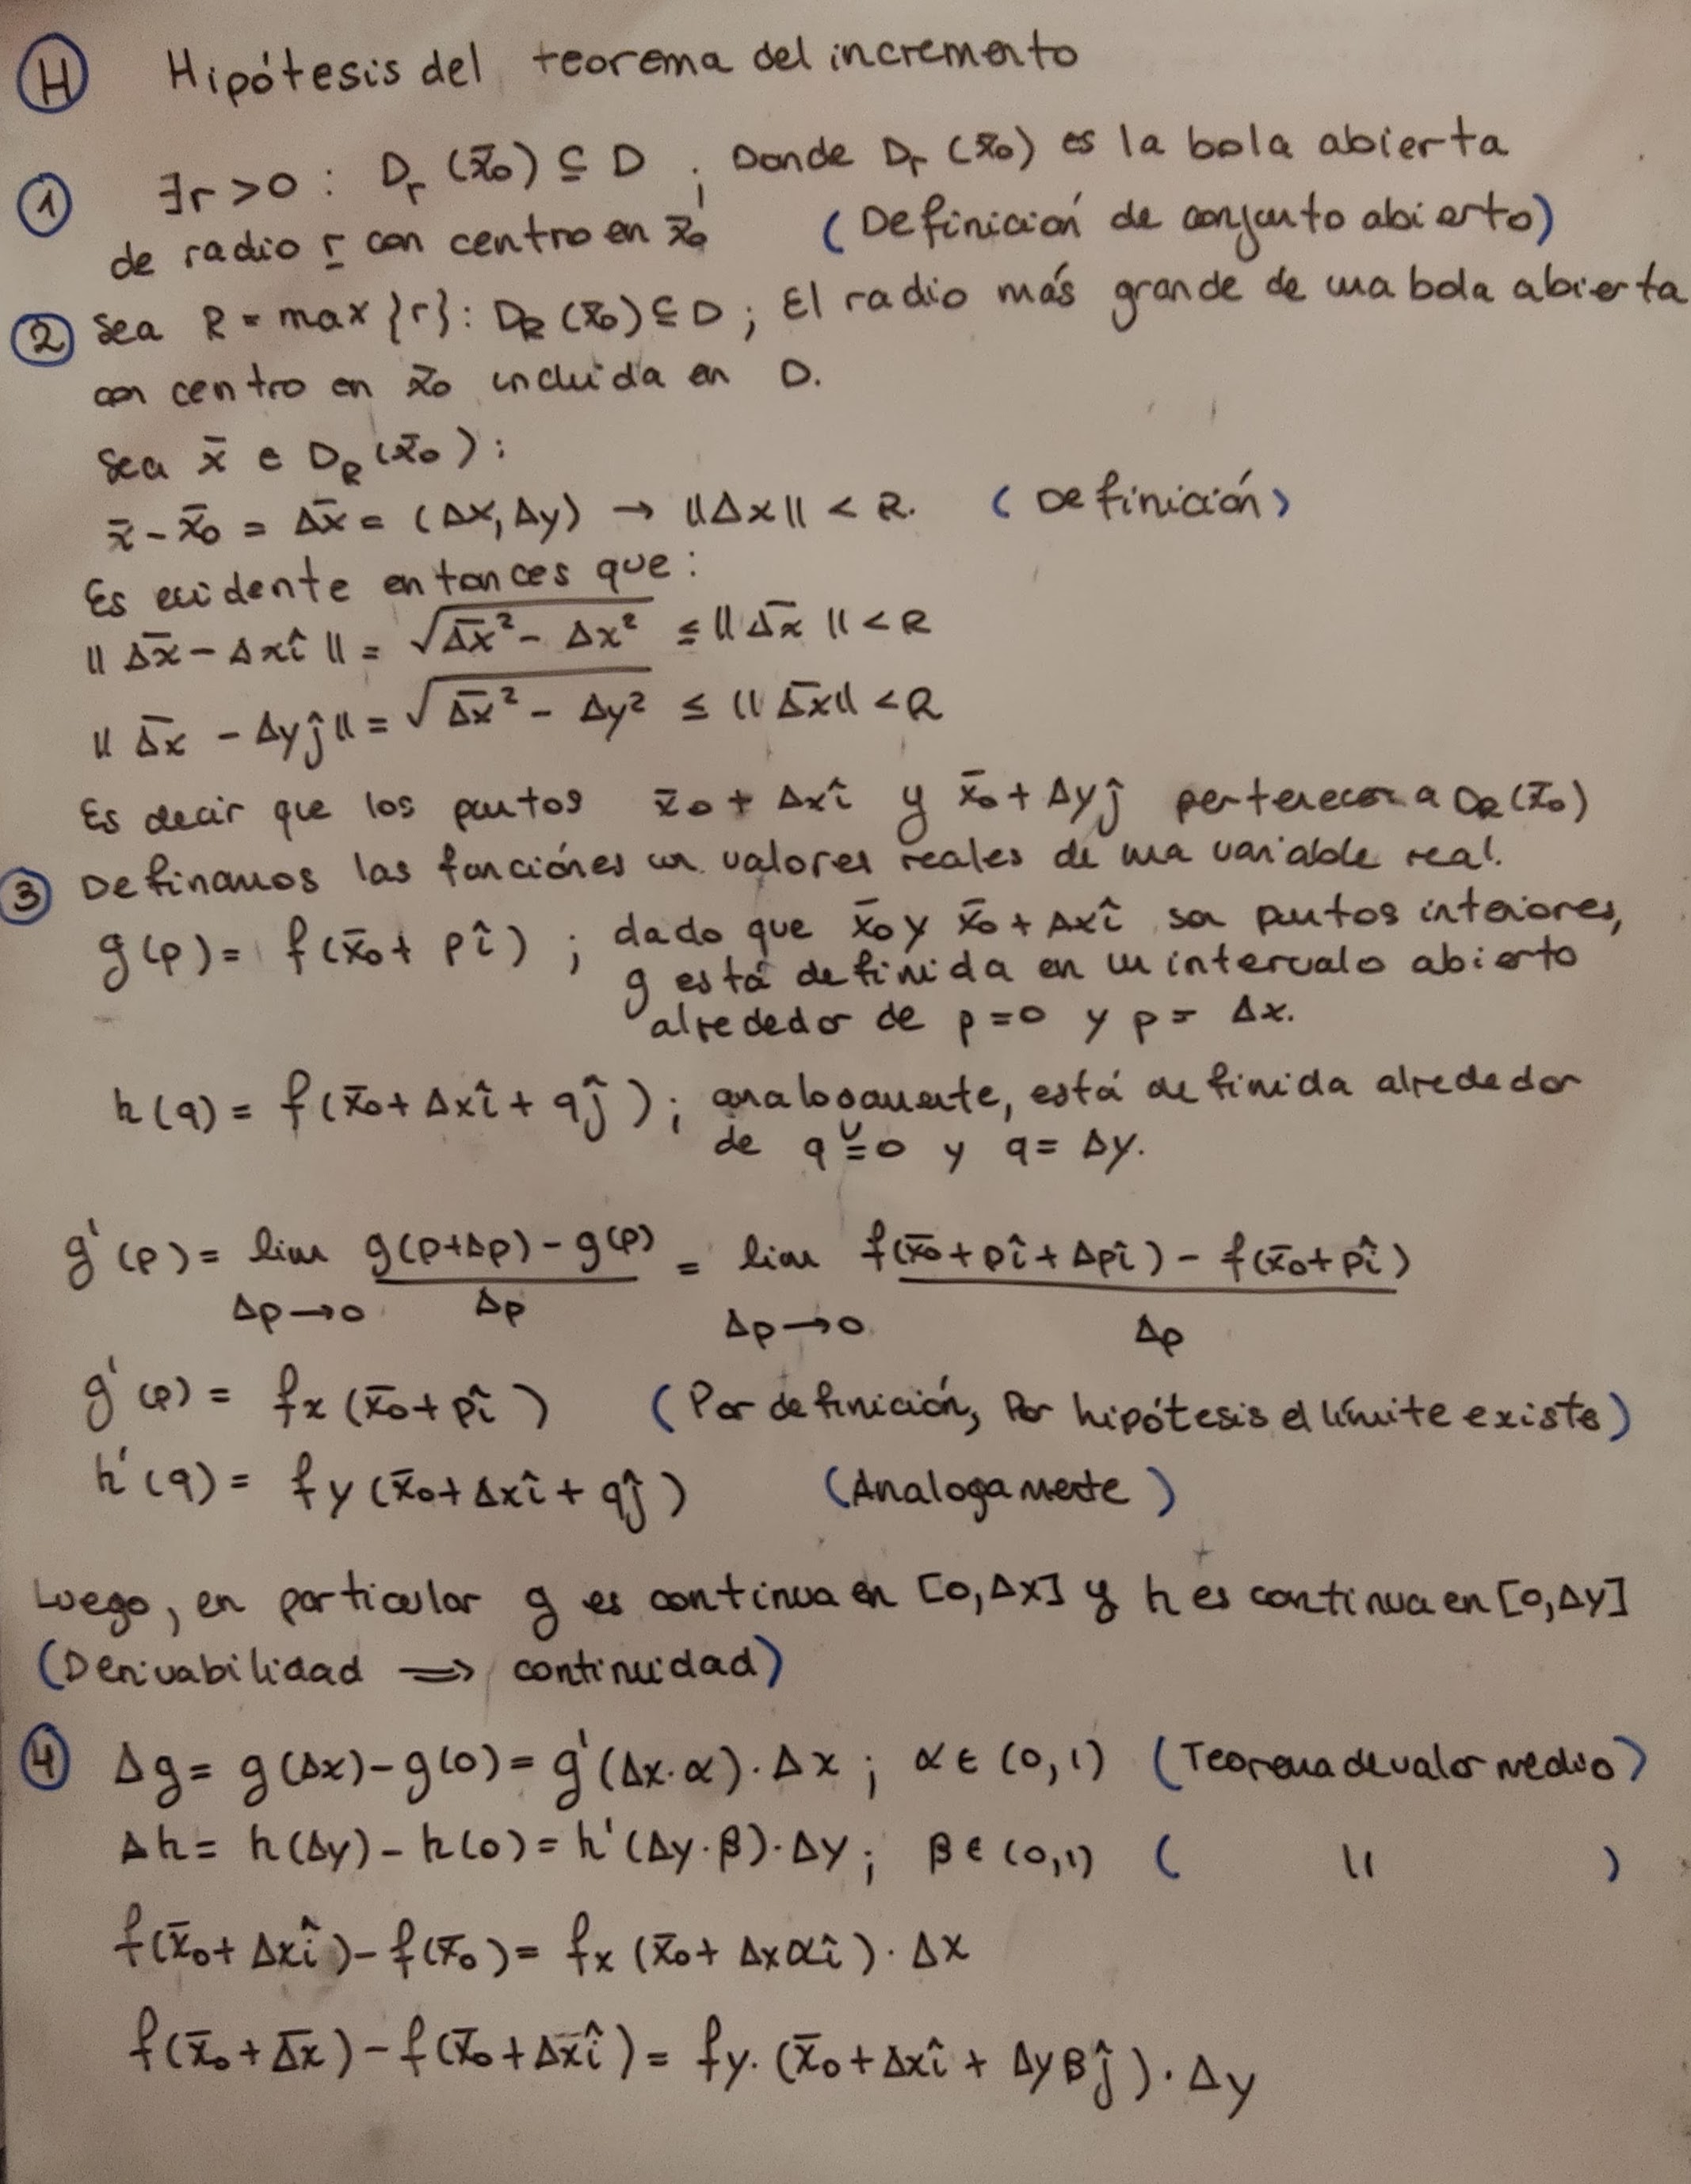 (H) Hipótesis del teorema del incremento
(1) ∃r>0 : Dr (x̄₀) ⊆ D ; Donde Dr (x̄₀) es la bola abierta
de radio r con centro en x̄₀ (Definición de conjunto abierto)
(2) Sea R = max {r} : D_R (x̄₀) ⊆ D ; El radio más grande de una bola abierta
con centro en x̄₀ incluida en D.
Sea x̄ e D_R (x̄₀) :
x̄ - x̄₀ = Δx̄ = (Δx, Δy) → ||Δx|| < R. (Definición)
Es evidente entonces que:
|| Δx̄ - Δxî || = √(Δx̄² - Δx²) ≤ || Δx̄ || < R
|| Δx̄ - Δyĵ || = √(Δx̄² - Δy²) ≤ || Δx̄ || < R
Es decir que los puntos x̄₀ + Δxî y x̄₀ + Δyĵ pertenecen a D_R(x̄₀)
(3) Definamos las funciónes con valores reales de una variable real.
g(p) = f(x̄₀ + pî) ; dado que x̄₀ y x̄₀ + Δxî son puntos interiores,
g está definida en un intervalo abierto
alrededor de p=0 y p= Δx.
h(q) = f(x̄₀ + Δxî + qĵ) ; analogamente, está definida alrededor
de q=0 y q= Δy.
g'(p) = lim g(p+Δp) - g(p) = lim f(x̄₀ + pî + Δpî) - f(x̄₀ + pî)
Δp→0 Δp Δp→0 Δp
g'(p) = fx (x̄₀ + pî) (Por definición, Por hipótesis el límite existe)
h'(q) = fy (x̄₀ + Δxî + qĵ) (Analogamente)
Luego, en particular g es continua en [0,Δx] y h es continua en [0,Δy]
(Derivabilidad ⟹ continuidad)
(4) Δg = g(Δx) - g(0) = g'(Δx·α)·Δx ; α ∈ (0,1) (Teorema de valor medio)
Δh = h(Δy) - h(0) = h'(Δy·β)·Δy ; β ∈ (0,1) ( '' )
f(x̄₀ + Δxî) - f(x̄₀) = fx (x̄₀ + Δxαî) · Δx
f(x̄₀ + Δx̄) - f(x̄₀ + Δxî) = fy· (x̄₀ + Δxî + Δyβĵ) · Δy